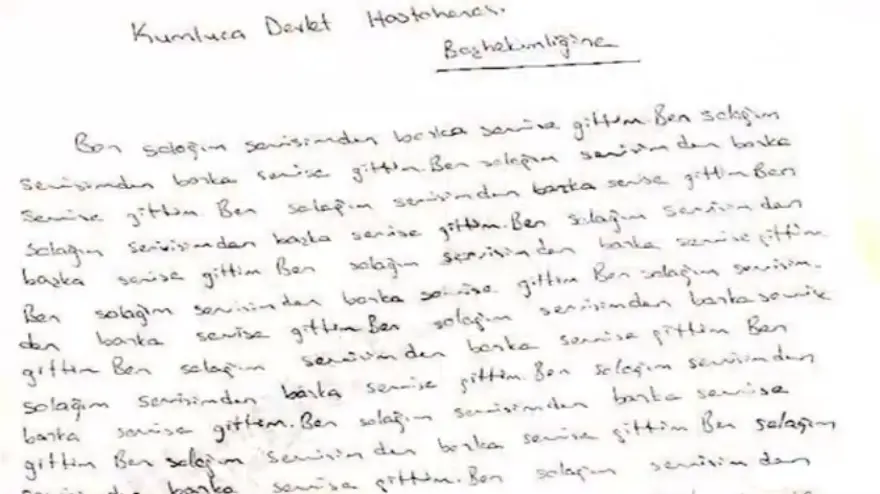 Kumluca Devlet Hastahanesi
Başhekimliğine
Ben salağım servisimden başka servise gittim. Ben salağım
servisimden başka servise gittim. Ben salağım servisimden başka
servise gittim. Ben salağım servisimden başka servise gittim Ben
salağım servisimden başka servise gittim. Ben salağım servisimden
başka servise gittim Ben salağım servisimden başka servise gittim
Ben salağım servisimden başka servise gittim Ben salağım servisim-
den başka servise gittim Ben salağım servisimden başka servise
gittim Ben salağım servisimden başka servise gittim Ben
salağım servisimden başka servise gittim. Ben salağım servisimden
başka servise gittim. Ben salağım servisimden başka servise
gittim Ben salağım servisimden başka servise gittim Ben salağım
başka servise gittim. Ben salağım servisimden